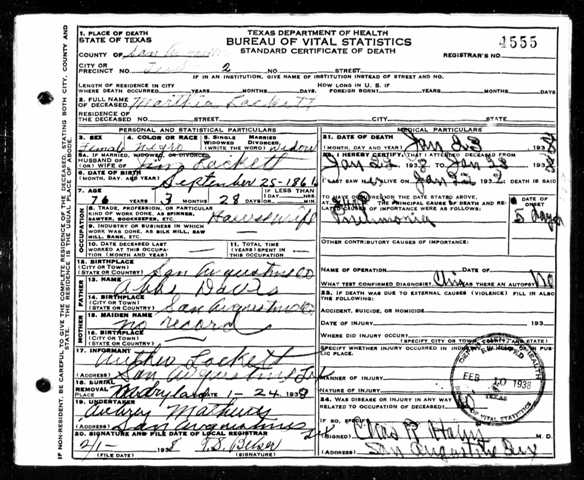 1. PLACE OF DEATH
STATE OF TEXAS
TEXAS DEPARTMENT OF HEALTH
BUREAU OF VITAL STATISTICS
STANDARD CERTIFICATE OF DEATH
4555
COUNTY OF San
REGISTRAR'S NO.
CITY OR
PRECINCT NO. 2 NO. STREET
IF IN AN INSTITUTION, GIVE NAME OF INSTITUTION INSTEAD OF STREET AND NO.
LENGTH OF RESIDENCE
WHERE DEATH OCCURRED YEARS MONTHS DAYS
HOW LONG IN U. S. IF
FOREIGN BORN? YEARS MONTHS DAYS
2. FULL NAME
OF DECEASED Lockett
RESIDENCE OF
THE DECEASED NO. STREET CITY STATE
PERSONAL AND STATISTICAL PARTICULARS
3. SEX 4. COLOR OR RACE 5. SINGLE MARRIED
WIDOWED DIVORCED
(WRITE THE WORD)
Female Negro Widow
5A. IF MARRIED, WIDOWED, OR DIVORCED
HUSBAND OF
(OR) WIFE OF Lockett
6. DATE OF BIRTH
(MONTH, DAY, AND YEAR) September 25-186
7. AGE YEARS MONTHS DAYS IF LESS THAN
1 DAY
76 3 28 HOURS MIN.
8. TRADE, PROFESSION, OR PARTICULAR
KIND OF WORK DONE, AS SPINNER,
SAWYER, BOOKKEEPER, ETC. Housewife
9. INDUSTRY OR BUSINESS IN WHICH
WORK WAS DONE, AS SILK MILL, SAW
MILL, BANK, ETC.
10. DATE DECEASED LAST
WORKED AT THIS OCCUPA-
TION (MONTH AND YEAR)
11. TOTAL TIME
(YEARS) SPENT IN
THIS OCCUPATION
12. BIRTHPLACE
(CITY OR TOWN)
(STATE OR COUNTRY) San Augustine Co
FATHER
13. NAME Abbe Davis
14. BIRTHPLACE
(CITY OR TOWN)
(STATE OR COUNTRY) San Augustine Co
MOTHER
15. MAIDEN NAME
no record
16. BIRTHPLACE
(CITY OR TOWN)
(STATE OR COUNTRY)
17. INFORMANT Lockett
(ADDRESS) San Augustine Tex
18. BURIAL
REMOVAL Maryland 1-24-1938
19. UNDERTAKER
Aubrey Mathews
(ADDRESS) San Augustine Tex
20. SIGNATURE AND FILE DATE OF LOCAL REGISTRAR
2/1- 1938 T.S.
(FILE DATE) (SIGNATURE)
MEDICAL PARTICULARS
21. DATE OF DEATH
(MONTH, DAY AND YEAR) Jan 23 1938
22. I HEREBY CERTIFY, THAT I ATTENDED DECEASED FROM
Jan 1938 TO Jan 1938
I LAST SAW Jan 22 193 DEATH IS SAID
TO HAVE OCCURRED ON THE DATE STATED ABOVE,
THE PRINCIPAL CAUSE OF DEATH AND
IMPORTANCE WERE AS FOLLOWS:
DATE OF
ONSET
Pneumonia 5 days
OTHER CONTRIBUTORY CAUSES OF IMPORTANCE:
NAME OF OPERATION DATE OF
WHAT TEST CONFIRMED DIAGNOSIS? WAS THERE AN AUTOPSY? No
23. IF DEATH WAS DUE TO EXTERNAL CAUSES (VIOLENCE) FILL IN ALSO
THE FOLLOWING:
ACCIDENT, SUICIDE, OR HOMICIDE?
DATE OF INJURY 193
WHERE DID INJURY OCCUR?
(SPECIFY CITY OR TOWN, COUNTY, AND STATE)
SPECIFY WHETHER INJURY OCCURRED IN INDUSTRY, IN HOME, OR IN PUB-
LIC PLACE.
MANNER OF INJURY
NATURE OF INJURY
24. WAS DISEASE OR INJURY IN ANY WAY
RELATED TO OCCUPATION OF DECEASED?
(SIGNED) Chas M. D.
(ADDRESS) San Augustine Tex
FEB 10 1938
TEXAS